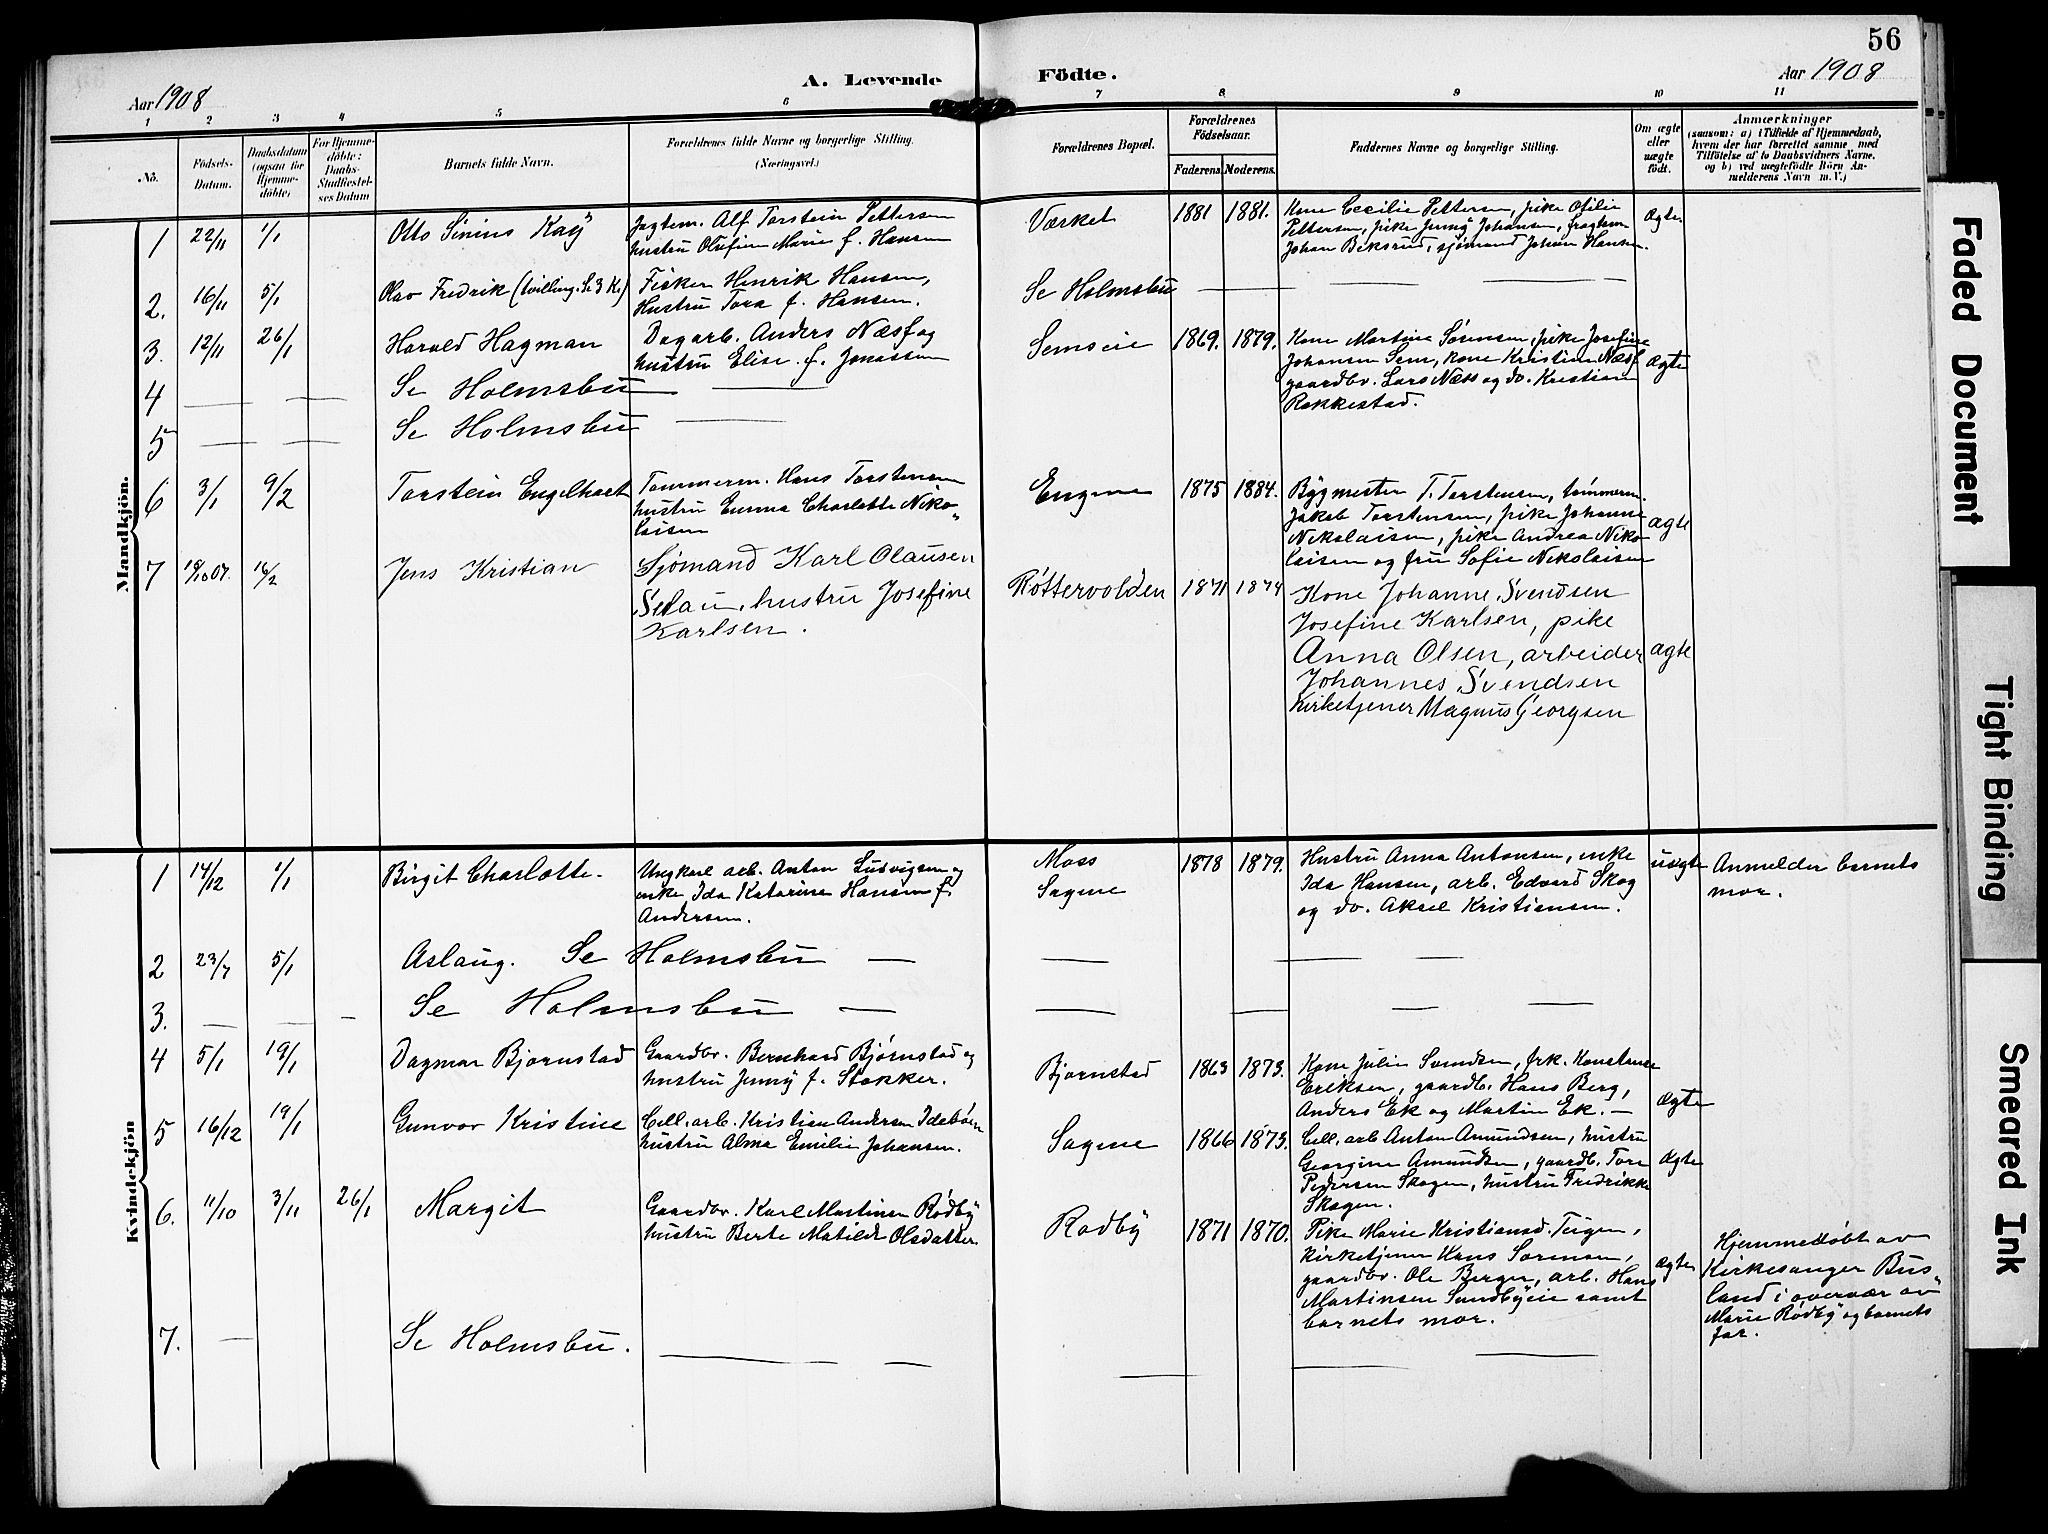 56
Aar 1908
A. Levende
Födte.
Aar 1908
1 2 3 4 5 6 7 8 9 10 11
No.
Födsels-Datum.
Daabsdatum (ogsaa for Hjemme-döbte)
For Hjemme-döbte: Daabs-Stadfæstel-ses Datum
Barnets fulde Navn.
Forældrenes fulde Navne og borgerlige Stilling.
(Næringsvei.)
Forældrenes Bopæl.
Forældrenes Födselsaar.
Faderens
Moderens.
Faddernes Navne og borgerlige Stilling.
Om ægte eller uægte födt.
Anmærkninger
(saasom: a) i Tilfælde af Hjemmedaab,
hvem der har forrettet samme, med
Tilföielse af to Daabsvidners Navne,
og b) ved uægtefödte Börn An-
melderens Navn m. V.)
Mandkjön.
1 22/11 1/1 Otto Sinius Kaÿ
Jagtem. Alf Torstein Pettersen
hustru Olufine Marie f. Hansen
Værket 1881 1881.
Kone Cecilie Pettersen, pike Otilie
Pettersen, pike Jenny Johansen, fragtem
Johan Beksrud, sjømand Johan Hansen.
Ægte.
2. 16/11 5/1 Olav Fredrik (tvilling. Se 3 K.)
Fisker Henrik Hansen,
Hustru Tora f. Hansen.
Se Holmsbu
3. 12/11 26/1 Harald Hagman
Dagarb. Anders Næss og
hustru Elise f. Jonassen
Semseie 1869. 1879.
Kone Martine Sørensen, pike Josefine
Johansen Sem, kone Kristine Næss
gaardbr. Lars Næss og do. Kristian
Rakkestad.
Ægte
4 — — Se Holmsbu — —
5 — — Se Holmsbu —
6 3/1 9/2 Torstein Engelhart
Tømmerm. Hans Torstensen
hustru Emma Charlotte Niko-
laisen
Engene 1875 1884.
Bygmester T. Torstensen, tømmerm.
Jakob Torstensen, pike Johanne
Nikolaisen, pike Andrea Niko
laisen og fru Sofie Nikolaisen
ægte
7 18/10 07. 16/2 Jens Kristian
Sjømand Karl Olausen
hustru Josefine
Karlsen.
Røttervolden 1871 1874
Kone Johanne Svendsen
Josefine Karlsen, pike
Anna Olsen, arbeider
Johannes Svendsen
Kirketjener Magnus Georgsen
ægte
Kvindekjön
1 14/12 1/1 Birgit Charlotte.
Ungkarl arb. Anton Ludvigsen og
enke Ida Katarina Hansen f.
Andersen.
Moss
Sagene
1878 1879.
Hustru Anna Antonsen, enke
Ida Hansen, arb. Edvard Skog
og do. Aksel Kristiansen.
uægte
Anmelder barnets
mor.
2 23/7 5/1 Aslaug. Se Holmsbu —
3. — — — Se Holmsbu —
4 5/1 19/1 Dagmar Bjørnstad
Gaardbr. Bernhard Bjørnstad og
hustru Jenny f. Stokker.
Bjørnstad 1863 1873.
Kone Julie Svendsen, frk. Konstanse
Eriksen, gaardb. Hans Berg,
Anders Ek og Martin Ek. —
Ægte
5 16/12 19/1 Gunvor Kristine
Cell. arb. Kristian Andersen Idebøen
hustru Alma Emilie Johansen.
Sagene 1866 1873.
Cell. arb Anton Amundsen, hustru
Georgine Amundsen, gaardb. Tore
Pedersen Skogen, hustru Fredrikke
Skogen.
Ægte
6. 11/10 3/11 26/1 Margit
Gaardbr. Karl Martinsen Rødbÿ
hustru Berte Matilde Olsdatter.
Rødbÿ 1871 1870.
Pike Marie Kristiansd. Teigen,
kirketjener Hans Sørensen,
gaardbr. Ole Berger, arb. Hans
Martinsen Sundbyeie samt
barnets mor.
Ægte
Hjemmedøbt av
Kirkesanger Bus-
land i overvær av
Marie Rødbÿ og barnets
far.
7. — Se Holmsbu.
Faded Document
Tight Binding
Smeared Ink